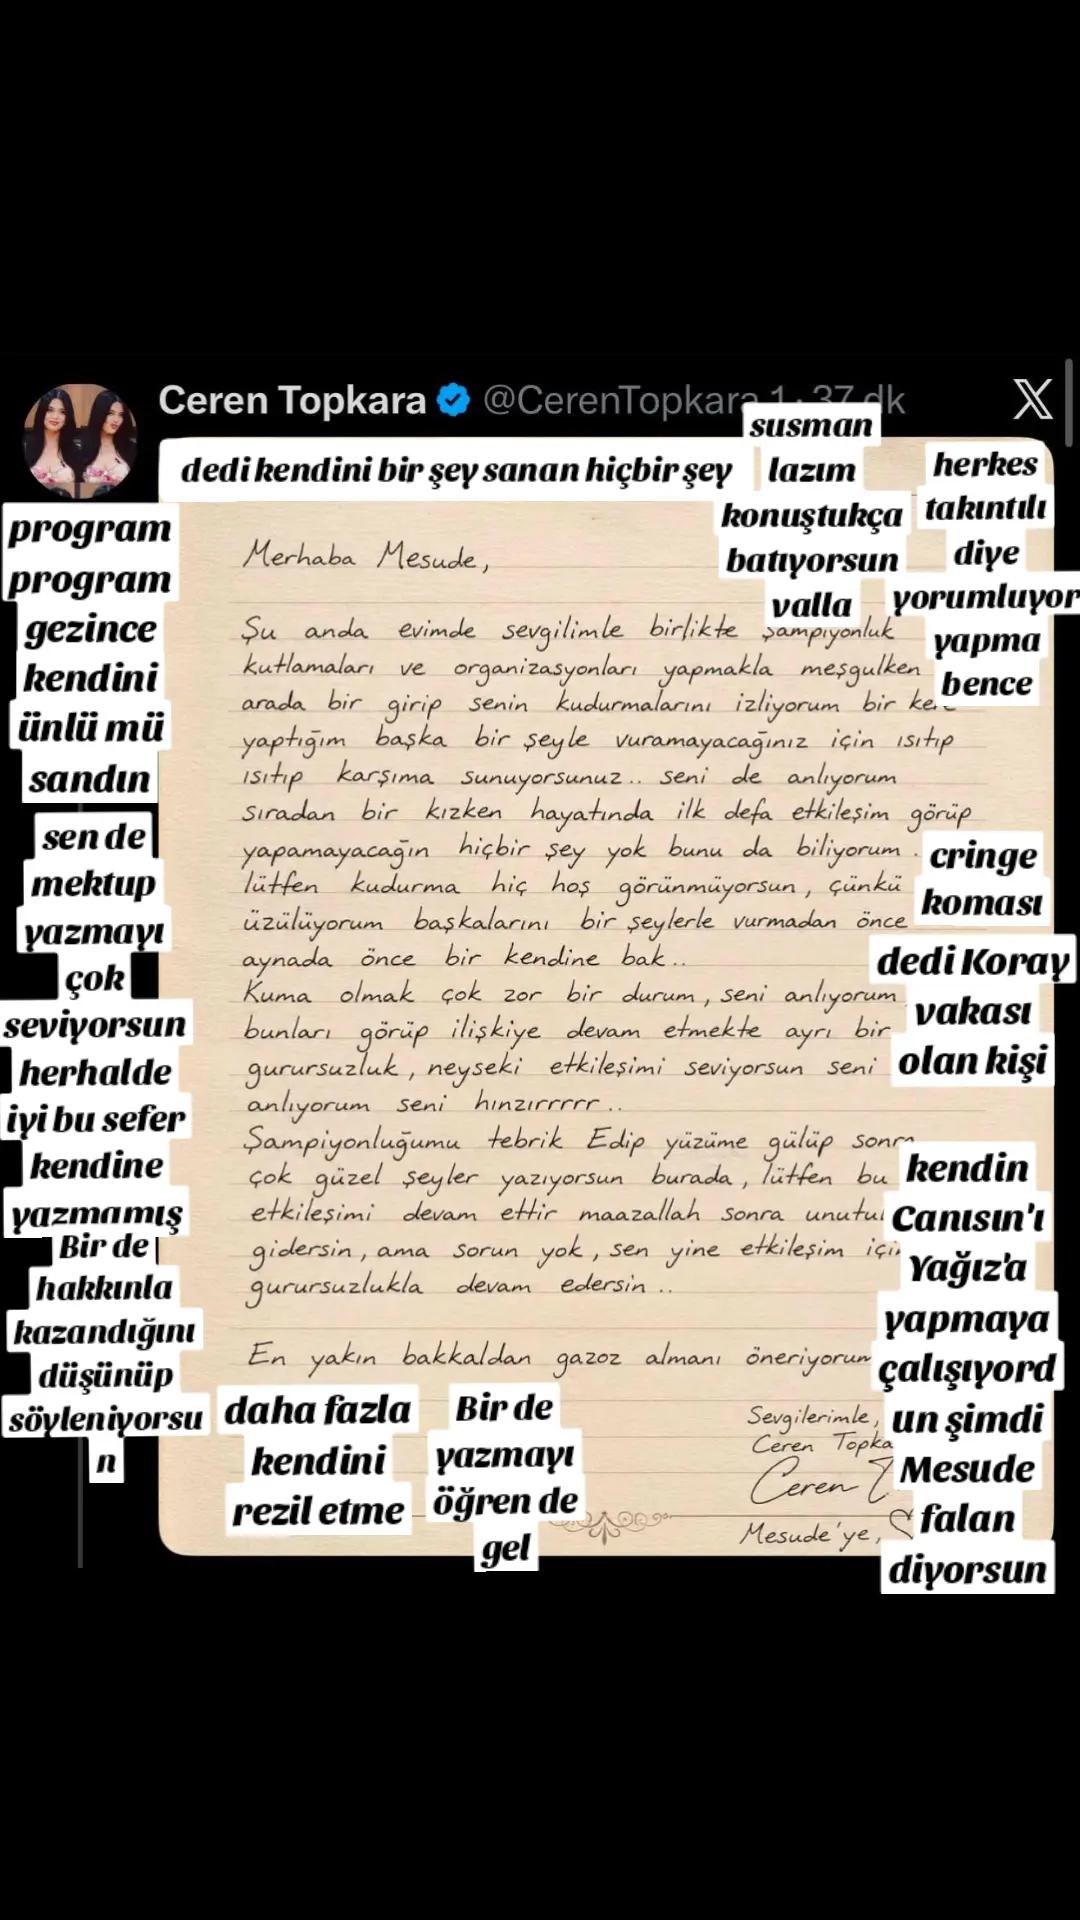 Ceren Topkara @CerenTopkara_1 · 37 dk
dedi kendini bir şey sanan hiçbir şey
susman
lazım
konuştukça
batıyorsun
valla
herkes
takıntılı
diye
yorumluyor
yapma
bence
program
program
gezince
kendini
ünlü mü
sandın
sen de
mektup
yazmayı
çok
seviyorsun
herhalde
iyi bu sefer
kendine
yazmamış
Bir de
hakkınla
kazandığını
düşünüp
söyleniyorsu
n
Merhaba Mesude,
Şu anda evimde sevgilimle birlikte şampiyonluk
kutlamaları ve organizasyonları yapmakla meşgulken
arada bir girip senin kudurmalarını izliyorum bir kere
yaptığım başka bir şeyle vuramayacağınız için ısıtıp
ısıtıp karşıma sunuyorsunuz.. seni de anlıyorum
sıradan bir kızken hayatında ilk defa etkileşim görüp
yapamayacağın hiçbir şey yok bunu da biliyorum.
lütfen kudurma hiç hoş görünmüyorsun, çünkü
üzülüyorum başkalarını bir şeylerle vurmadan önce
aynada önce bir kendine bak..
Kuma olmak çok zor bir durum, seni anlıyorum
bunları görüp ilişkiye devam etmekte ayrı bir
gurursuzluk, neyseki etkileşimi seviyorsun seni
anlıyorum seni hınzırrrrr..
Şampiyonluğumu tebrik Edip yüzüme gülüp sonra
çok güzel şeyler yazıyorsun burada, lütfen bu
etkileşimi devam ettir maazallah sonra unutul
gidersin, ama sorun yok, sen yine etkileşim için
gurursuzlukla devam edersin..
En yakın bakkaldan gazoz almanı öneriyorum
Sevgilerimle,
Ceren Topka
Ceren T
Mesude'ye, ♡
cringe
koması
dedi Koray
vakası
olan kişi
kendin
Canısın'ı
Yağız'a
yapmaya
çalışıyord
un şimdi
Mesude
falan
diyorsun
daha fazla
kendini
rezil etme
Bir de
yazmayı
öğren de
gel